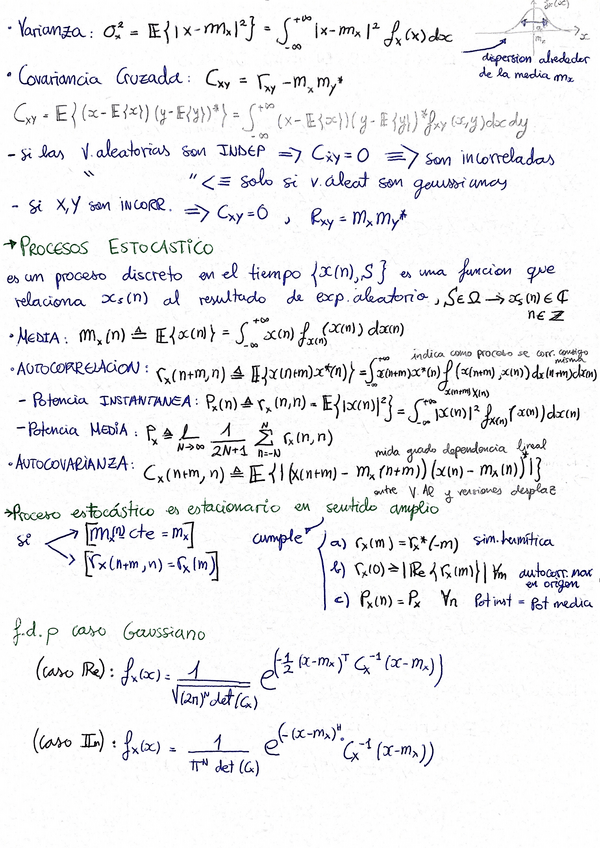 · Varianza: σₓ² = E{|x-mₓ|²} = ∫_{-∞}^{+∞} |x-mₓ|² fₓ(x)dx
dispersion alrededor
de la media mₓ
· Covariancia Cruzada: C_{xy} = r_{xy} - mₓ m_y*
C_{xy} = E{(x-E{x})(y-E{y})*} = ∫_{-∞}^{+∞} (x-E{x})(y-E{y})* f_{xy}(x,y)dxdy
- si las V.aleatorias son INDEP => C_{xy}=0 ≡> son incorreladas
" " <≡ solo si v.aleat son gaussianas
- si X,Y son INCORR. => C_{xy}=0 , R_{xy} = mₓ m_y*
→ PROCESOS ESTOCASTICO
es un proceso discreto en el tiempo {x(n), S} es una funcion que
relaciona xₛ(n) al resultado de exp.aleatorio, S∈Ω → xₛ(n)∈ℂ
n∈ℤ
· MEDIA: mₓ(n) ≜ E{x(n)} = ∫_{-∞}^{+∞} x(n) f_{x(n)}(x(n)) dx(n)
indica como proceso se corr. consigo misma
· AUTOCORRELACION: rₓ(n+m,n) ≜ E{x(n+m)x*(n)} = ∫_{-∞}^{+∞} x(n+m)x*(n) f_{x(n+m)x(n)}(x(n+m),x(n))dx(n+m)dx(n)
- Potencia INSTANTANEA: Pₓ(n) ≜ rₓ(n,n) = E{|x(n)|²} = ∫_{-∞}^{+∞} |x(n)|² f_{x(n)}(x(n))dx(n)
- Potencia MEDIA: Pₓ ≜ L_{N→∞} 1/(2N+1) ∑_{n=-N}^{N} rₓ(n,n)
mida grado dependencia lineal
· AUTOCOVARIANZA: Cₓ(n+m,n) ≜ E{|(x(n+m) - mₓ(n+m))(x(n) - mₓ(n))*|}
entre V.AR y versiones desplaz
→ Proceso estocástico es estacionario en sentido amplio
si [mₓ(n) cte = mₓ]
[rₓ(n+m,n) = rₓ(m)]
cumple
a) rₓ(m) = rₓ*(-m) sim.hermítica
b) rₓ(0) ≥ |Re{rₓ(m)}| ∀m autocorr. max en origen
c) Pₓ(n) = Pₓ ∀n Pot inst = Pot media
f.d.p caso Gaussiano
(caso Re): fₓ(x) = 1/√((2π)^N det(Cₓ)) e^(-1/2 (x-mₓ)^T Cₓ⁻¹ (x-mₓ))
(caso Im): fₓ(x) = 1/(π^N det(Cₓ)) e^(-(x-mₓ)^H · Cₓ⁻¹ (x-mₓ))